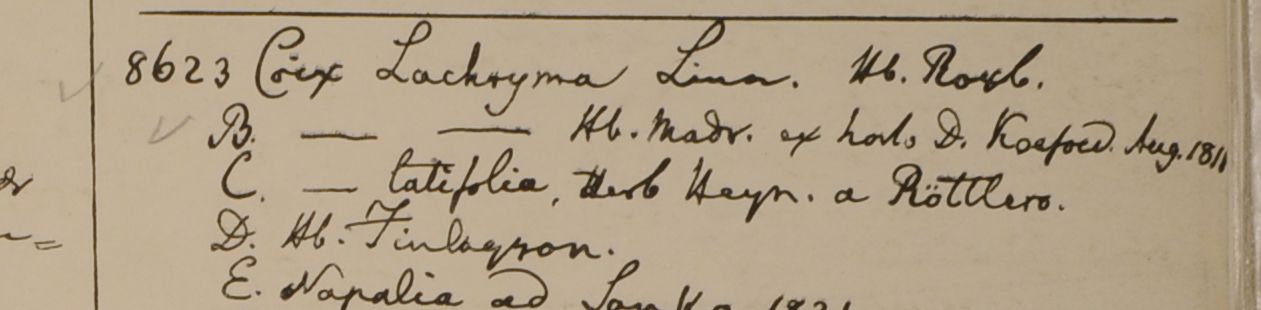 8623 Coix Lachryma Linn. Hb. Roxb.
B. — — Hb. Madr. ex horto D. Koefoed. Aug. 1811
C. — latifolia, Herb Heyn. a Röttlero.
D. Hb. Finlayson.
E. Napalia ad 1821